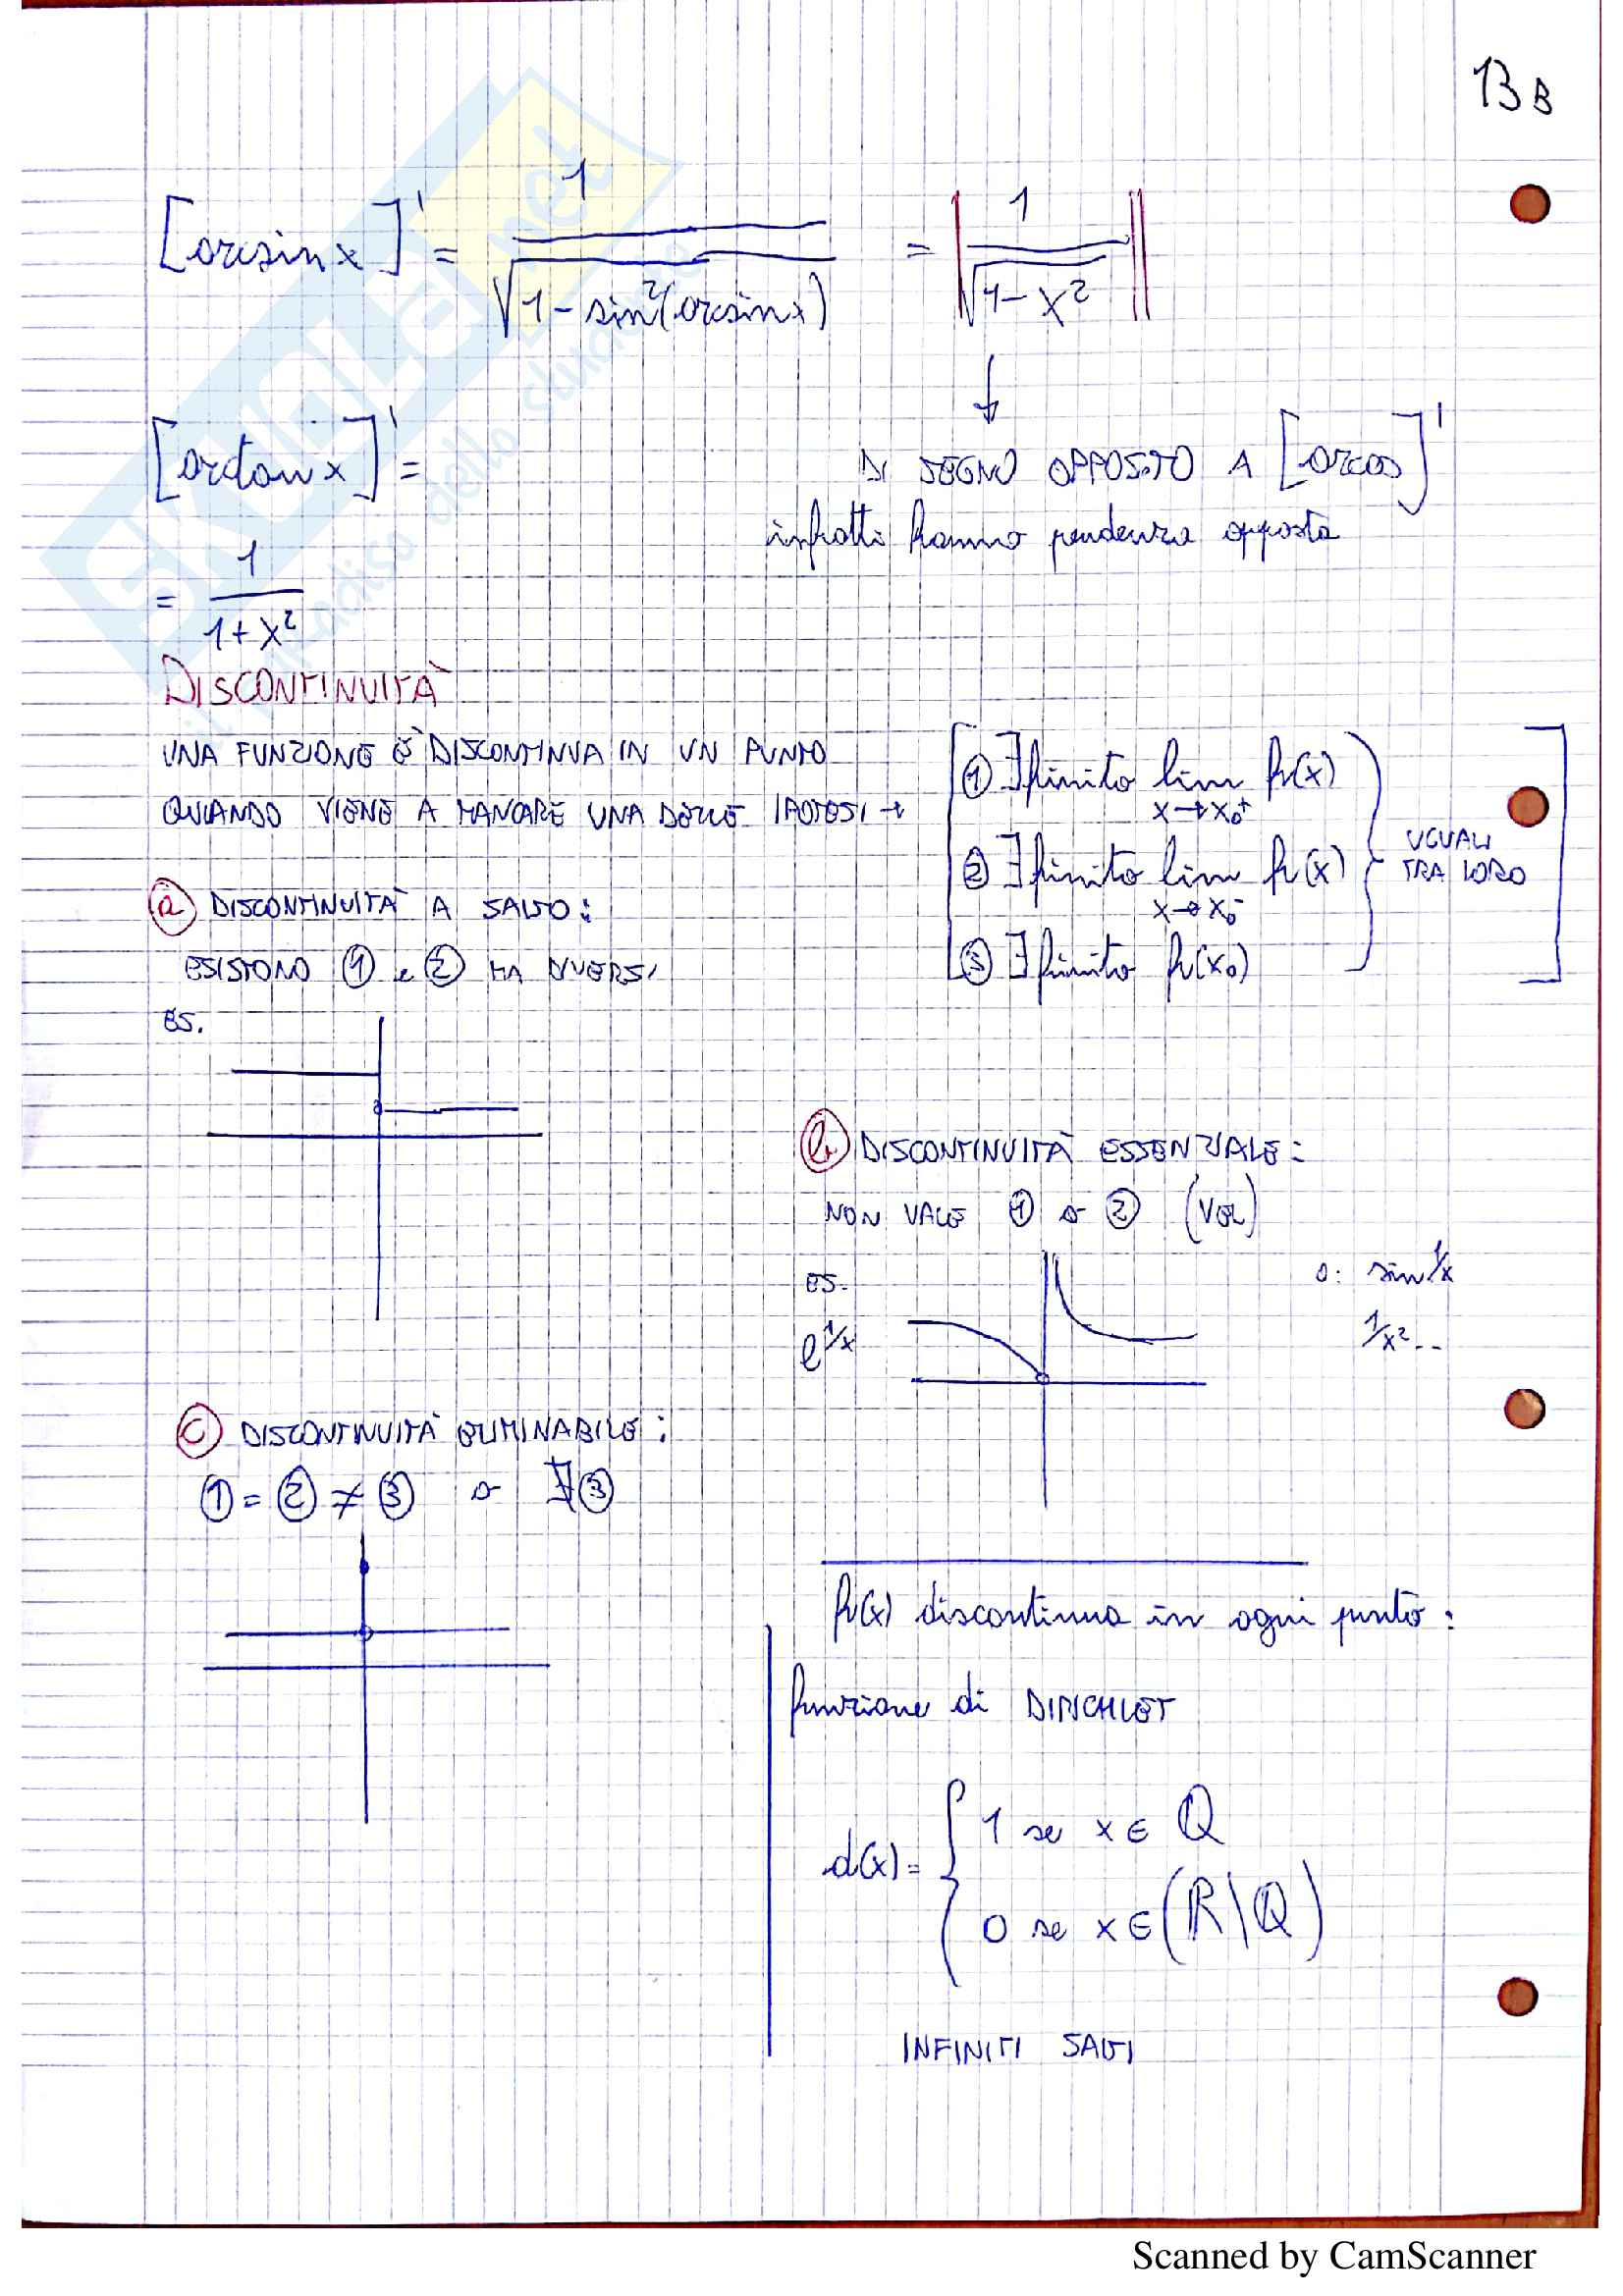 13B
[arcsin x]' = 1 / √(1 - sin²(arcsin x)) = 1 / √(1 - x²)
↓
[arctan x]' =
DI SEGNO OPPOSTO A [arcos]'
infatti hanno pendenza opposta
= 1 / (1 + x²)
DISCONTINUITÀ
UNA FUNZIONE È DISCONTINUA IN UN PUNTO
QUANDO VIENE A MANCARE UNA DELLE IPOTESI →
① ∃ finito lim f(x)
x→x₀⁺
② ∃ finito lim f(x)
x→x₀⁻
③ ∃ finito f(x₀)
UGUALI
TRA LORO
ⓐ DISCONTINUITÀ A SALTO:
ESISTONO ① e ② MA DIVERSI
ES.
ⓑ DISCONTINUITÀ ESSENZIALE:
NON VALE ① o ② (VEL)
ES.
e^1/x
o: sin 1/x
1/x²..
ⓒ DISCONTINUITÀ ELIMINABILE:
① = ② ≠ ③ o ∄ ③
f(x) discontinua in ogni punto:
funzione di DIRICHLET
d(x) = { 1 se x ∈ ℚ
0 se x ∈ (ℝ\ℚ)
INFINITI SALTI
SKUOLA.net
il paradiso dello studente
Scanned by CamScanner